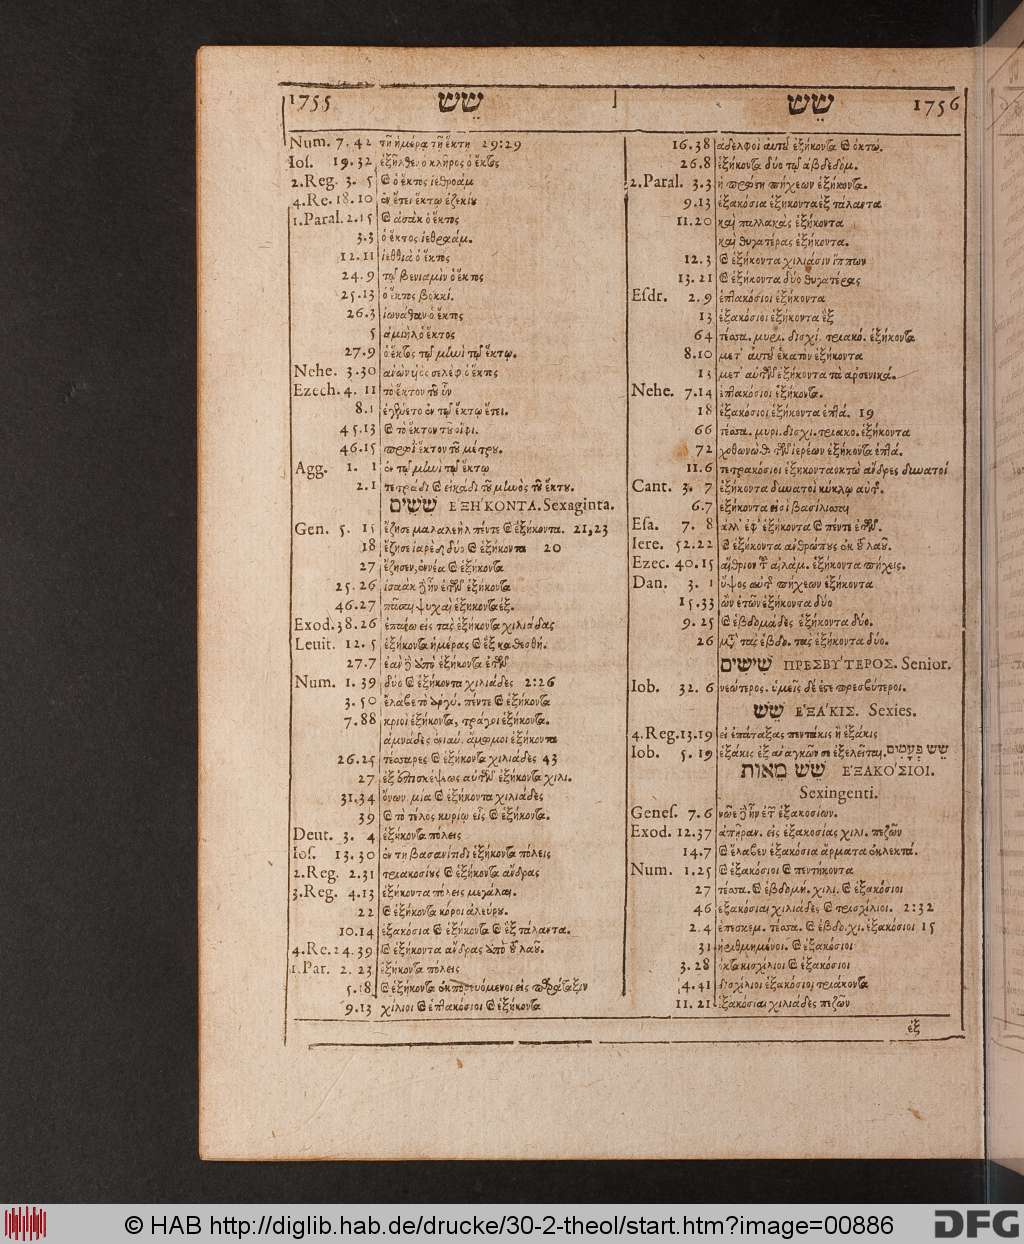 1755 שֵׁשׁ
Num. 7. 42 τῇ ἡμέρᾳ τῇ ἕκτῃ 29:29
Ios. 19. 32 ἐξῆλθεν ὁ κλῆρος ὁ ἕκτος
2. Reg. 3. 5 καὶ ὁ ἕκτος ἰεθραάμ
4. Re. 18. 10 ἐν ἔτει ἕκτῳ ἐζεκίου
1. Paral. 2. 15 καὶ ἀσὰκ ὁ ἕκτος
3. 3 ὁ ἕκτος ἰεθραάμ.
12. 11 ἰεθθιὰ ὁ ἕκτος
24. 9 τῷ βενιαμὶν ὁ ἕκτος
25. 13 ὁ ἕκτος βοκκί.
26. 3 ἰωνάθαν ὁ ἕκτος
5 ἀμιὴλ ὁ ἕκτος
27. 9 ὁ ἕκτος τῷ μηνὶ τῷ ἕκτῳ.
Nehe. 3. 30 ἀνὼν υἱὸς σελὲφ ὁ ἕκτος
Ezech. 4. 11 τὸ ἕκτον τοῦ ἲν
8. 1 ἐγένετο ἐν τῷ ἕκτῳ ἔτει.
45. 13 καὶ τὸ ἕκτον τοῦ οἰφί.
46. 15 πρωῒ ἕκτον τοῦ μέτρου.
Agg. 1. 1 ἐν τῷ μηνὶ τῷ ἕκτῳ
2. 1 τετράδι καὶ εἰκάδι τοῦ μηνὸς τοῦ ἕκτου.
שִׁשִּׁים ΕΞΗ´ΚΟΝΤΑ. Sexaginta.
Gen. 5. 15 ἔζησε μαλαλεὴλ πέντε καὶ ἑξήκοντα. 21, 23
18 ἔζησε ἰαρὲδ δύο καὶ ἑξήκοντα 20
27 ἔζησεν, ἐννέα καὶ ἑξήκοντα
25. 26 ἰσαὰκ δὲ ἦν ἐτῶν ἑξήκοντα
46. 27 πᾶσαι ψυχαὶ ἑξήκοντα ἕξ.
Exod. 38. 26 ἐπάνω εἰς τὰς ἑξήκοντα χιλιάδας
Leuit. 12. 5 ἑξήκοντα ἡμέρας καὶ ἓξ καθεσθή.
27. 7 ἐὰν δὲ ἀπὸ ἑξήκοντα ἐτῶν
Num. 1. 39 δύο καὶ ἑξήκοντα χιλιάδες 2:26
3. 50 ἔλαβε τὸ ἀργύ. πέντε καὶ ἑξήκοντα
7. 88 κριοὶ ἑξήκοντα, τράγοι ἑξήκοντα.
ἀμνάδες ἐνιαύ. ἄμωμοι ἑξήκοντα
26. 25 τέσσαρες καὶ ἑξήκοντα χιλιάδες 43
27 ἐξ ἐπισκέψεως αὐτῶν ἑξήκοντα χιλι.
31. 34 ὄνων. μία καὶ ἑξήκοντα χιλιάδες
39 καὶ τὸ τέλος κυρίῳ εἷς καὶ ἑξήκοντα.
Deut. 3. 4 ἑξήκοντα πόλεις
Ios. 13. 30 ἐν τῇ βασανίτιδι ἑξήκοντα πόλεις
2. Reg. 2. 31 τριακοσίους καὶ ἑξήκοντα ἄνδρας
3. Reg. 4. 13 ἑξήκοντα πόλεις μεγάλαι.
22 καὶ ἑξήκοντα κόροι ἀλεύρου.
10. 14 ἑξακόσια καὶ ἑξήκοντα καὶ ἓξ τάλαντα.
4. Re. 24. 39 καὶ ἑξήκοντα ἄνδρας ἀπὸ τοῦ λαοῦ.
1. Par. 2. 23 ἑξήκοντα πόλεις
5. 18 καὶ ἑξήκοντα ἐκπορευόμενοι εἰς παράταξιν
9. 13 χίλιοι καὶ ἑπτακόσιοι καὶ ἑξήκοντα
שֵׁשׁ 1756
16. 38 ἀδελφοὶ αὐτοῦ ἑξήκοντα καὶ ὀκτώ.
26. 8 ἑξήκοντα δύο τῷ ἀβδεδόμ.
2. Paral. 3. 3 ἡ πρώτη πήχεων ἑξήκοντα.
9. 13 ἑξακόσια ἑξήκοντα ἓξ τάλαντα
11. 20 καὶ παλλακὰς ἑξήκοντα
καὶ θυγατέρας ἑξήκοντα.
12. 3 καὶ ἑξήκοντα χιλιάσιν ἵππων
13. 21 καὶ ἑξήκοντα δύο θυγατέρας
Esdr. 2. 9 ἑπτακόσιοι ἑξήκοντα
13 ἑξακόσιοι ἑξήκοντα ἓξ
64 τέσσα. μυρι. δισχί. τριακό. ἑξήκοντα
8. 10 μετ' αὐτοῦ ἑκατὸν ἑξήκοντα
13 μετ' αὐτῶν ἑξήκοντα τὰ ἀρσενικά.
Nehe. 7. 14 ἑπτακόσιοι ἑξήκοντα.
18 ἑξακόσιοι ἑξήκοντα ἑπτά. 19
66 τέσσα. μυρι. δισχι. τριακο. ἑξήκοντα
72 χοθωνὼθ τῶν ἱερέων ἑξήκοντα ἑπτά.
11. 6 τετρακόσιοι ἑξηκονταοκτὼ ἄνδρες δυνατοί
Cant. 3. 7 ἑξήκοντα δυνατοὶ κύκλῳ αὐτῆς.
6. 7 ἑξήκοντά εἰσι βασίλισσαι
Esa. 7. 8 ἀλλ' ἐφ' ἑξήκοντα καὶ πέντε ἐτῶν.
Iere. 52. 22 καὶ ἑξήκοντα ἀνθρώπους ἐκ τοῦ λαοῦ.
Ezec. 40. 15 αἴθριον τοῦ αἰλάμ. ἑξήκοντα πήχεις.
Dan. 3. 1 ὕψος αὐτῆς πήχεων ἑξήκοντα
15. 33 ὢν ἐτῶν ἑξήκοντα δύο
9. 25 καὶ ἑβδομάδες ἑξήκοντα δύο.
26 μετὰ τὰς ἑβδο. τὰς ἑξήκοντα δύο.
שִׁישִׁים ΠΡΕΣΒΥ´ΤΕΡΟΣ. Senior.
Iob. 32. 6 νεώτερος. ὑμεῖς δέ ἐστε πρεσβύτεροι.
שֵׁשׁ ΕʹΞΑ´ΚΙΣ. Sexies.
4. Reg. 13. 19 εἰ ἐπάταξας πεντάκις ἢ ἑξάκις
Iob. 5. 19 ἑξάκις ἐξ ἀναγκῶν σε ἐξελεῖται. שֵׁשׁ פְּעָמִים
שֵׁשׁ מֵאוֹת ΕʹΞΑΚΟ´ΣΙΟΙ.
Sexingenti.
Genes. 7. 6 νῶε δὲ ἦν ἐτῶν ἑξακοσίων.
Exod. 12. 37 ἀπῆραν. εἰς ἑξακοσίας χιλι. πεζῶν
14. 7 καὶ ἔλαβεν ἑξακόσια ἅρματα ἐκλεκτά.
Num. 1. 25 καὶ ἑξακόσιοι καὶ πεντήκοντα
27 τέσσα. καὶ ἑβδομή. χιλι. καὶ ἑξακόσιοι
46 ἑξακόσιαι χιλιάδες καὶ τρισχίλιοι. 2:32
2. 4 ἐπεσκεμ. τέσσα. καὶ ἑβδο. χι. ἑξακόσιοι 15
31 ἠριθμημένοι. καὶ ἑξακόσιοι
3. 28 ὀκτακισχίλιοι καὶ ἑξακόσιοι
4. 41 δισχίλιοι ἑξακόσιοι τριάκοντα
11. 21 ἑξακόσιαι χιλιάδες πεζῶν
ἐξ
© HAB http://diglib.hab.de/drucke/30-2-theol/start.htm?image=00886
DFG